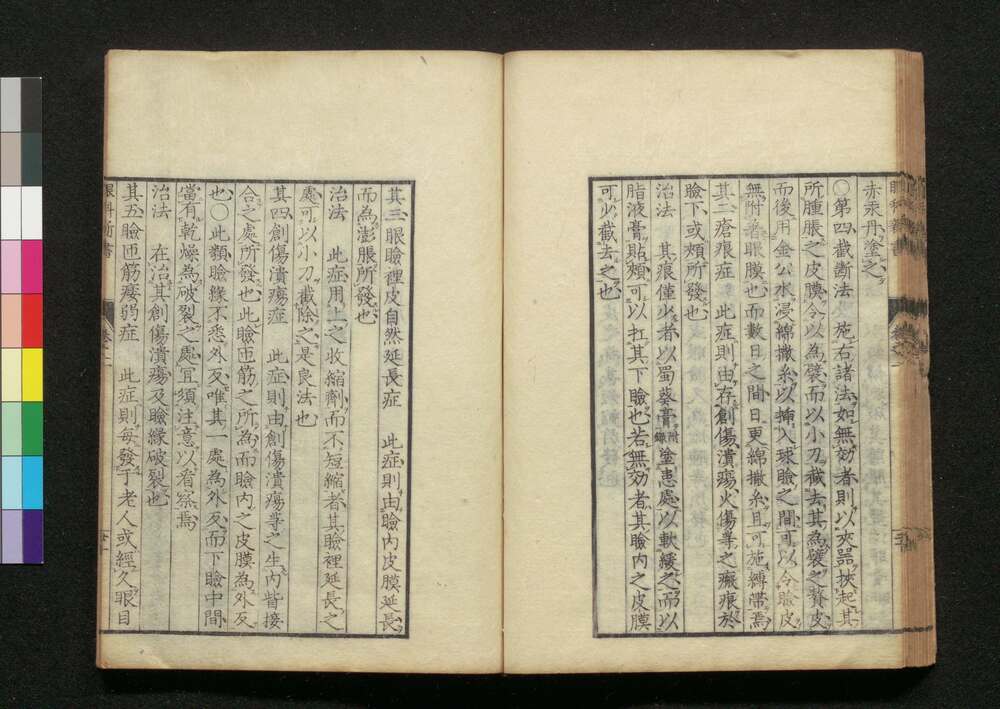 赤汞丹塗之
○第四截斷法 施右諸法如無効者則以夾器挾起其
所腫脹之皮膜令以為襞而以小刀截去其為襞之贅皮
而後用金公水浸綿撒糸以挿入球瞼之間可以令瞼皮
無附著眼膜也而數日之間日更綿撒糸且可施縛帯焉
其二瘡痕症 此症則由存創傷潰瘍火傷等之瘢痕於
瞼下或頰所發也
治法 其痕僅少者以蜀葵膏附錄塗患處以軟緩之而以
脂液膏貼頰可以扛其下瞼也若無効者其瞼内之皮膜
可少截去之也
其三眼瞼裡皮自然延長症 此症則由瞼内皮膜延長
而為澎脹所發也
治法 此症用上之收縮劑而不短縮者其瞼裡延長之
處可以小刀截除之是良法也
其四創傷潰瘍症 此症則由創傷潰瘍等之生内眥接
合之處所發也此瞼匝筋之所為而瞼内之皮膜為外反
也○此類瞼緣不悉外反唯其一處為外反而下瞼中間
當有乾燥為破裂之處冝須注意以看察焉
治法 在治其創傷潰瘍及瞼緣破裂也
其五瞼匝筋痿弱症 此症則每發于老人或經久眼目
眼科新書
卷之二